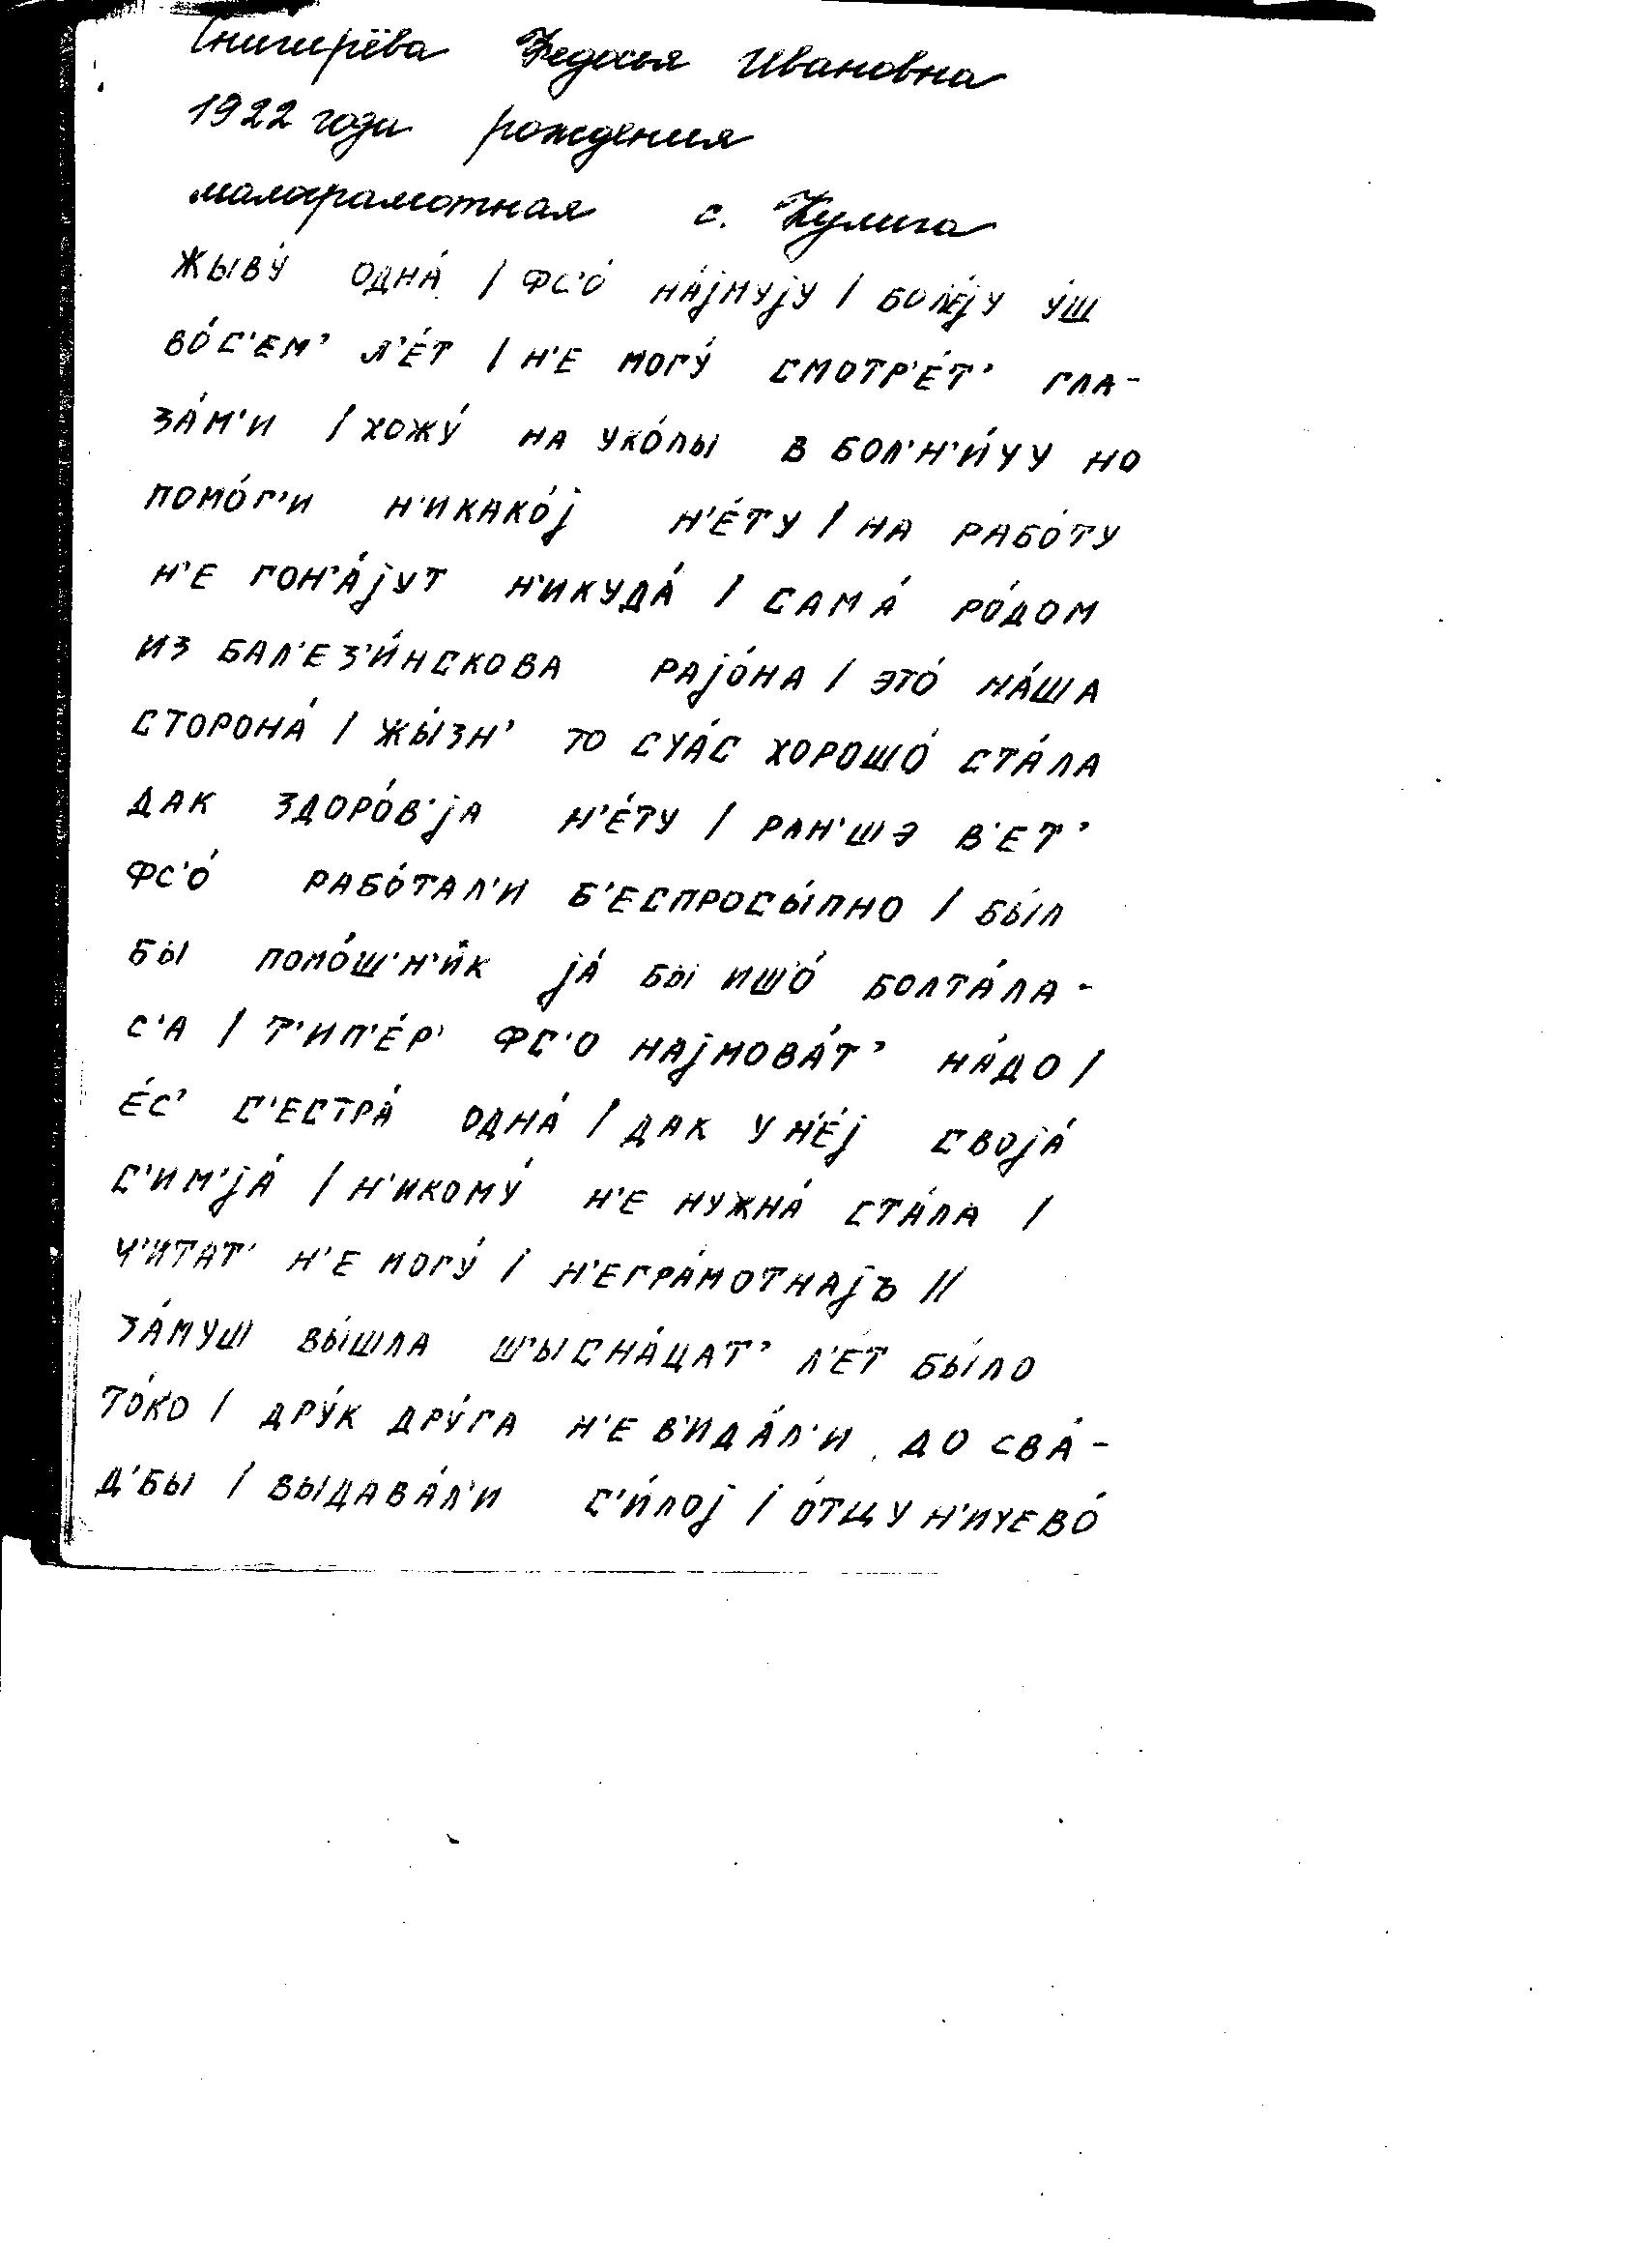 Снигирёва Федосья Ивановна
1922 года рождения
малограмотная с. Кулига
жыву́ одна́ / фс'о́ на́jмуjу / бол'е́jу у́ш
во́с'ем' л'е́т / н'е могу́ смотр'е́т' гла-
за́м'и / хожу́ на уко́лы в бол'н'и́чу но
помо́г'и н'икако́j н'е́ту / на рабо́ту
н'е гон'а́jут н'икуда́ / сама́ ро́дом
из бал'ез'и́нскова раjо́на / это́ на́ша
сторона́ / жы́зн' то сча́с хорошо́ ста́ла
дак здоро́в'jа н'е́ту / ран'шэ в'ет'
фс'о́ рабо́тал'и б'еспросы́пно / бы́л
бы помо́ш'н'ик jа́ бы ишо́ болта́ла-
с'а / т'ип'е́р' фс'о наjмова́т' на́до /
е́с' с'естра́ одна́ / дак у н'е́j своjа́
с'им'jа́ / н'икому́ н'е нужна́ ста́ла /
ч'итат' н'е могу́ / н'егра́мотнаjъ //
за́муш вы́шла ш'ысна́цат' л'ет бы́ло
то́ко / дру́к дру́га н'е в'ида́л'и до сва́-
д'бы / выдава́л'и с'и́лоj / о́тцу н'ичево́